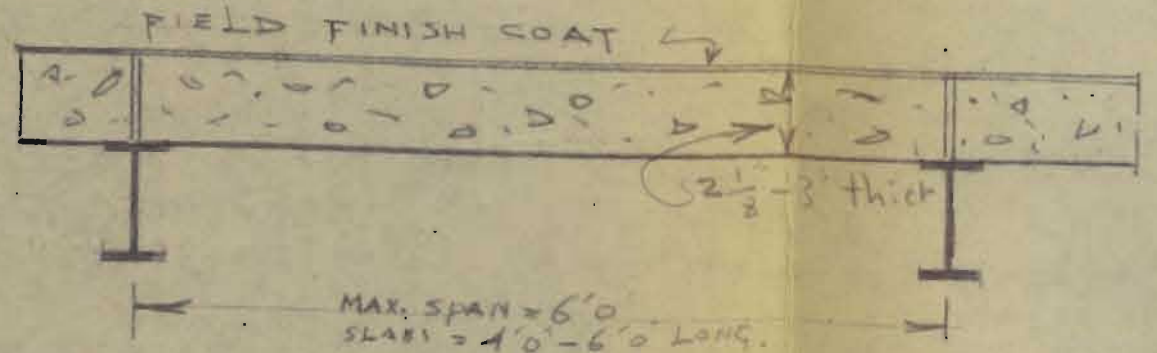 FIELD FINISH COAT
2 1/8 - 3" thick
MAX. SPAN = 6'0"
SLABS = 4'0" - 6'0" LONG.